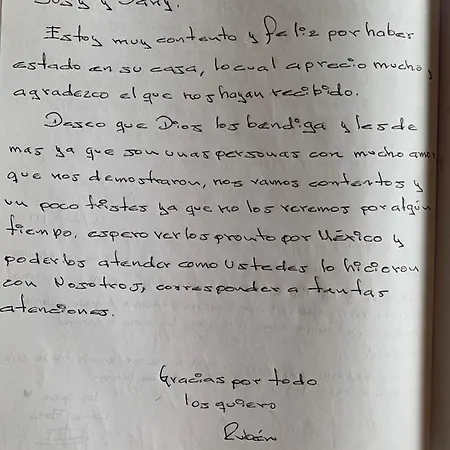 y
Estoy muy contento y feliz por haber
estado en su casa, lo cual aprecio mucho y
agradezco el que nos hayan recibido.
Deseo que Dios los bendiga y les de
mas ya que son unas personas con mucho amor
que nos demostraron, nos vamos contentos y
un poco tristes ya que no los veremos por algún
tiempo, espero verlos pronto por México y
poderlos atender como ustedes lo hicieron
con Nosotros, corresponder a tantas
atenciones.
Gracias por todo
los quiero
Rubén